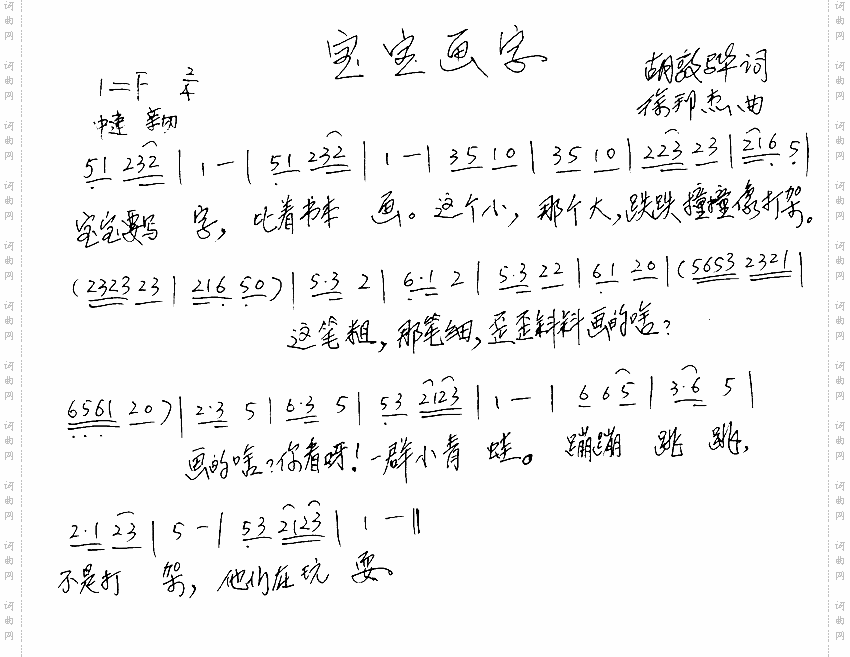 宝宝画字
1=F 2/4
胡敦骅词
中速 亲切
徐邦杰曲
51 232 | 1 — | 51 232 | 1 — | 35 10 | 35 10 | 223 23 | 216 5 |
宝宝要写 字，比着书本 画。这个小，那个大，跌跌撞撞像打架。
(2323 23 | 216 50) | 5·3 2 | 6·1 2 | 5·3 22 | 61 20 | (5653 2321 |
这笔粗，那笔细，歪歪斜斜画的啥？
6561 20) | 2·3 5 | 6·3 5 | 53 2123 | 1 — | 6 65 | 3·6 5 |
画的啥？你看呀！一群小青 蛙。 蹦蹦 跳 跳，
2·1 23 | 5 — | 53 2123 | 1 — ‖
不是打 架，他们在玩 耍。
词曲网
词曲网
词曲网
词曲网
词曲网
词曲网
词曲网
词曲网
词曲网
词曲网
词曲网
词曲网